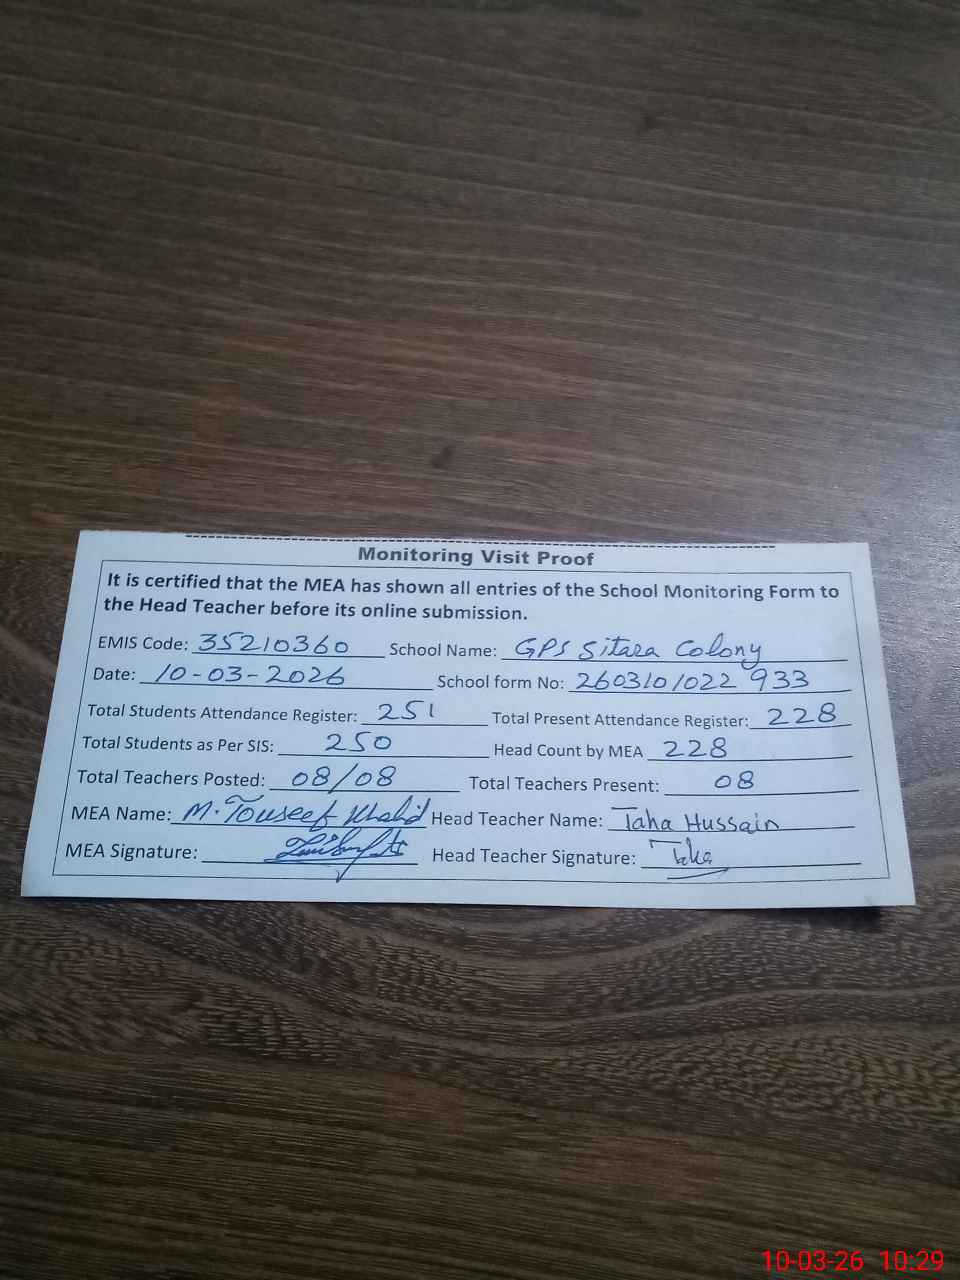 Monitoring Visit Proof
It is certified that the MEA has shown all entries of the School Monitoring Form to
the Head Teacher before its online submission.
EMIS Code: 35210360 School Name: GPS Sitara Colony
Date: 10-03-2026 School form No: 2603101022933
Total Students Attendance Register: 251 Total Present Attendance Register: 228
Total Students as Per SIS: 250 Head Count by MEA 228
Total Teachers Posted: 08/08 Total Teachers Present: 08
MEA Name: M. Touseef Khalid Head Teacher Name: Taha Hussain
MEA Signature: Head Teacher Signature: Taha
10-03-26 10:29